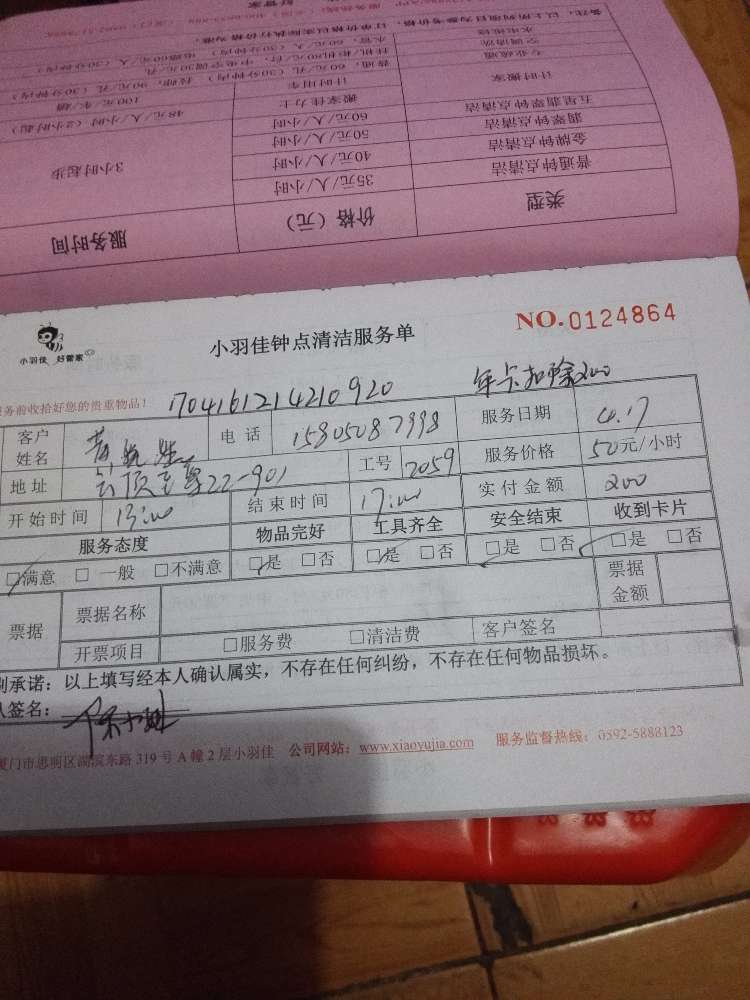 类型 价格（元） 服务时间
普通钟点清洁 35元/人/小时 3小时起步
金牌钟点清洁 40元/人/小时
翡翠钟点清洁 50元/人/小时
五星翡翠钟点清洁 60元/人/小时
计时搬家 搬家佳力士 48元/人/小时（2小时起）
计时用车 100元/车/趟
小羽佳 好管家
小羽佳钟点清洁服务单
NO.0124864
务前收拾好您的贵重物品！
1704161214210920
年卡扣除200
客户姓名 电话 15805087998 服务日期 4.17
地址 22-901 工号 2059 服务价格 50元/小时
开始时间 13:00 结束时间 17:00 实付金额 200
服务态度 物品完好 工具齐全 安全结束 收到卡片
□满意 □一般 □不满意 □是 □否 □是 □否 □是 □否 □是 □否
票据 票据名称 票据金额
开票项目 □服务费 □清洁费 客户签名
承诺：以上填写经本人确认属实，不存在任何纠纷，不存在任何物品损坏。
签名：
厦门市思明区湖滨东路319号A幢2层小羽佳 公司网站：www.xiaoyujia.com 服务监督热线：0592-5888123